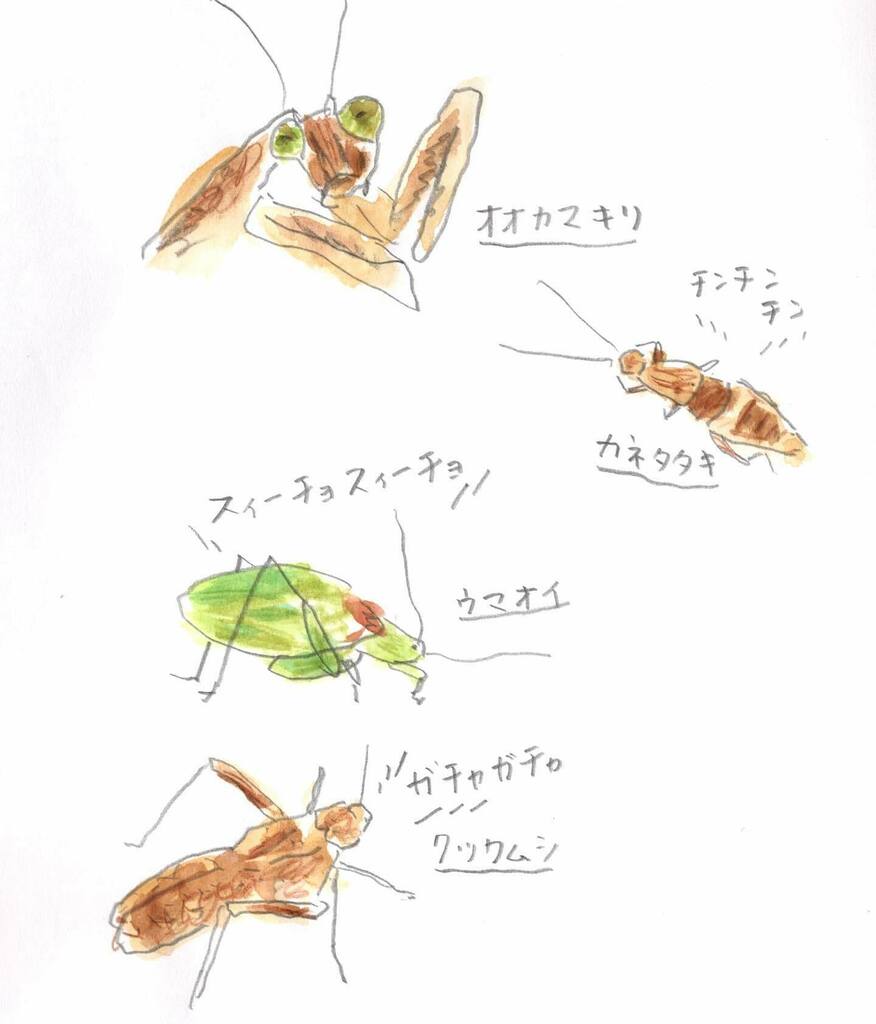 オオカマキリ
チンチン
チン
カネタタキ
スィーチョスィーチョ
ウマオイ
ガチャガチャ
クツワムシ